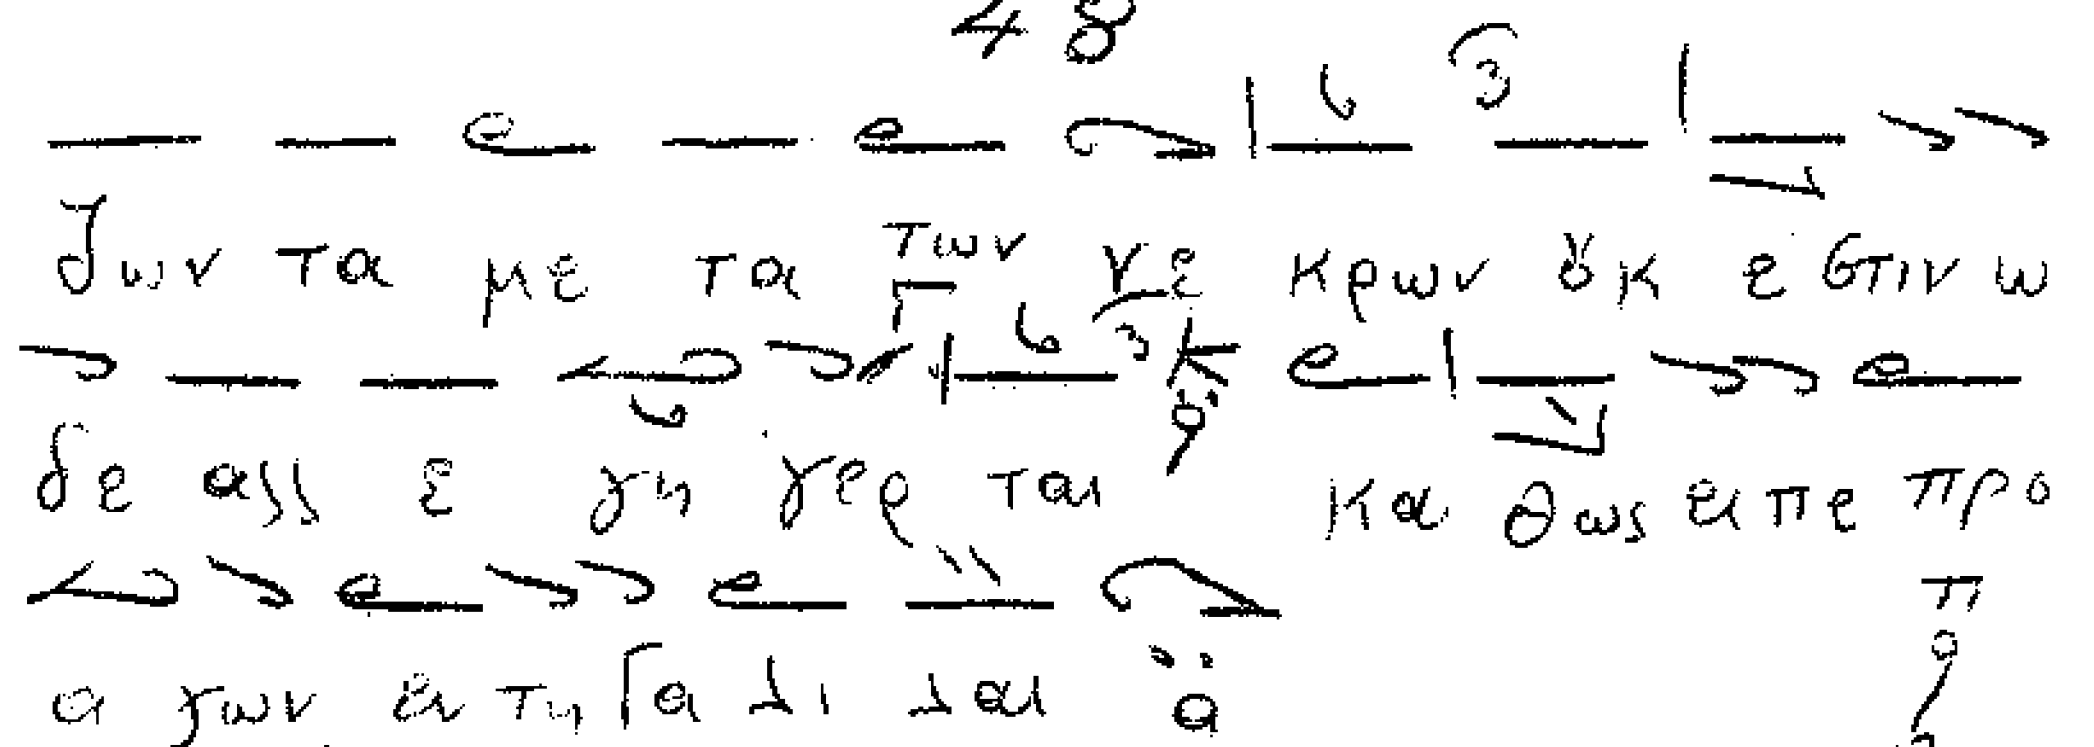 48
ζων τα με τα των νε κρων ȣκ ε στιν ω
δε αλλ ε γη γερ ται κα θως ει πε προ
α γων εν τη Γα λι λαι ᾳ